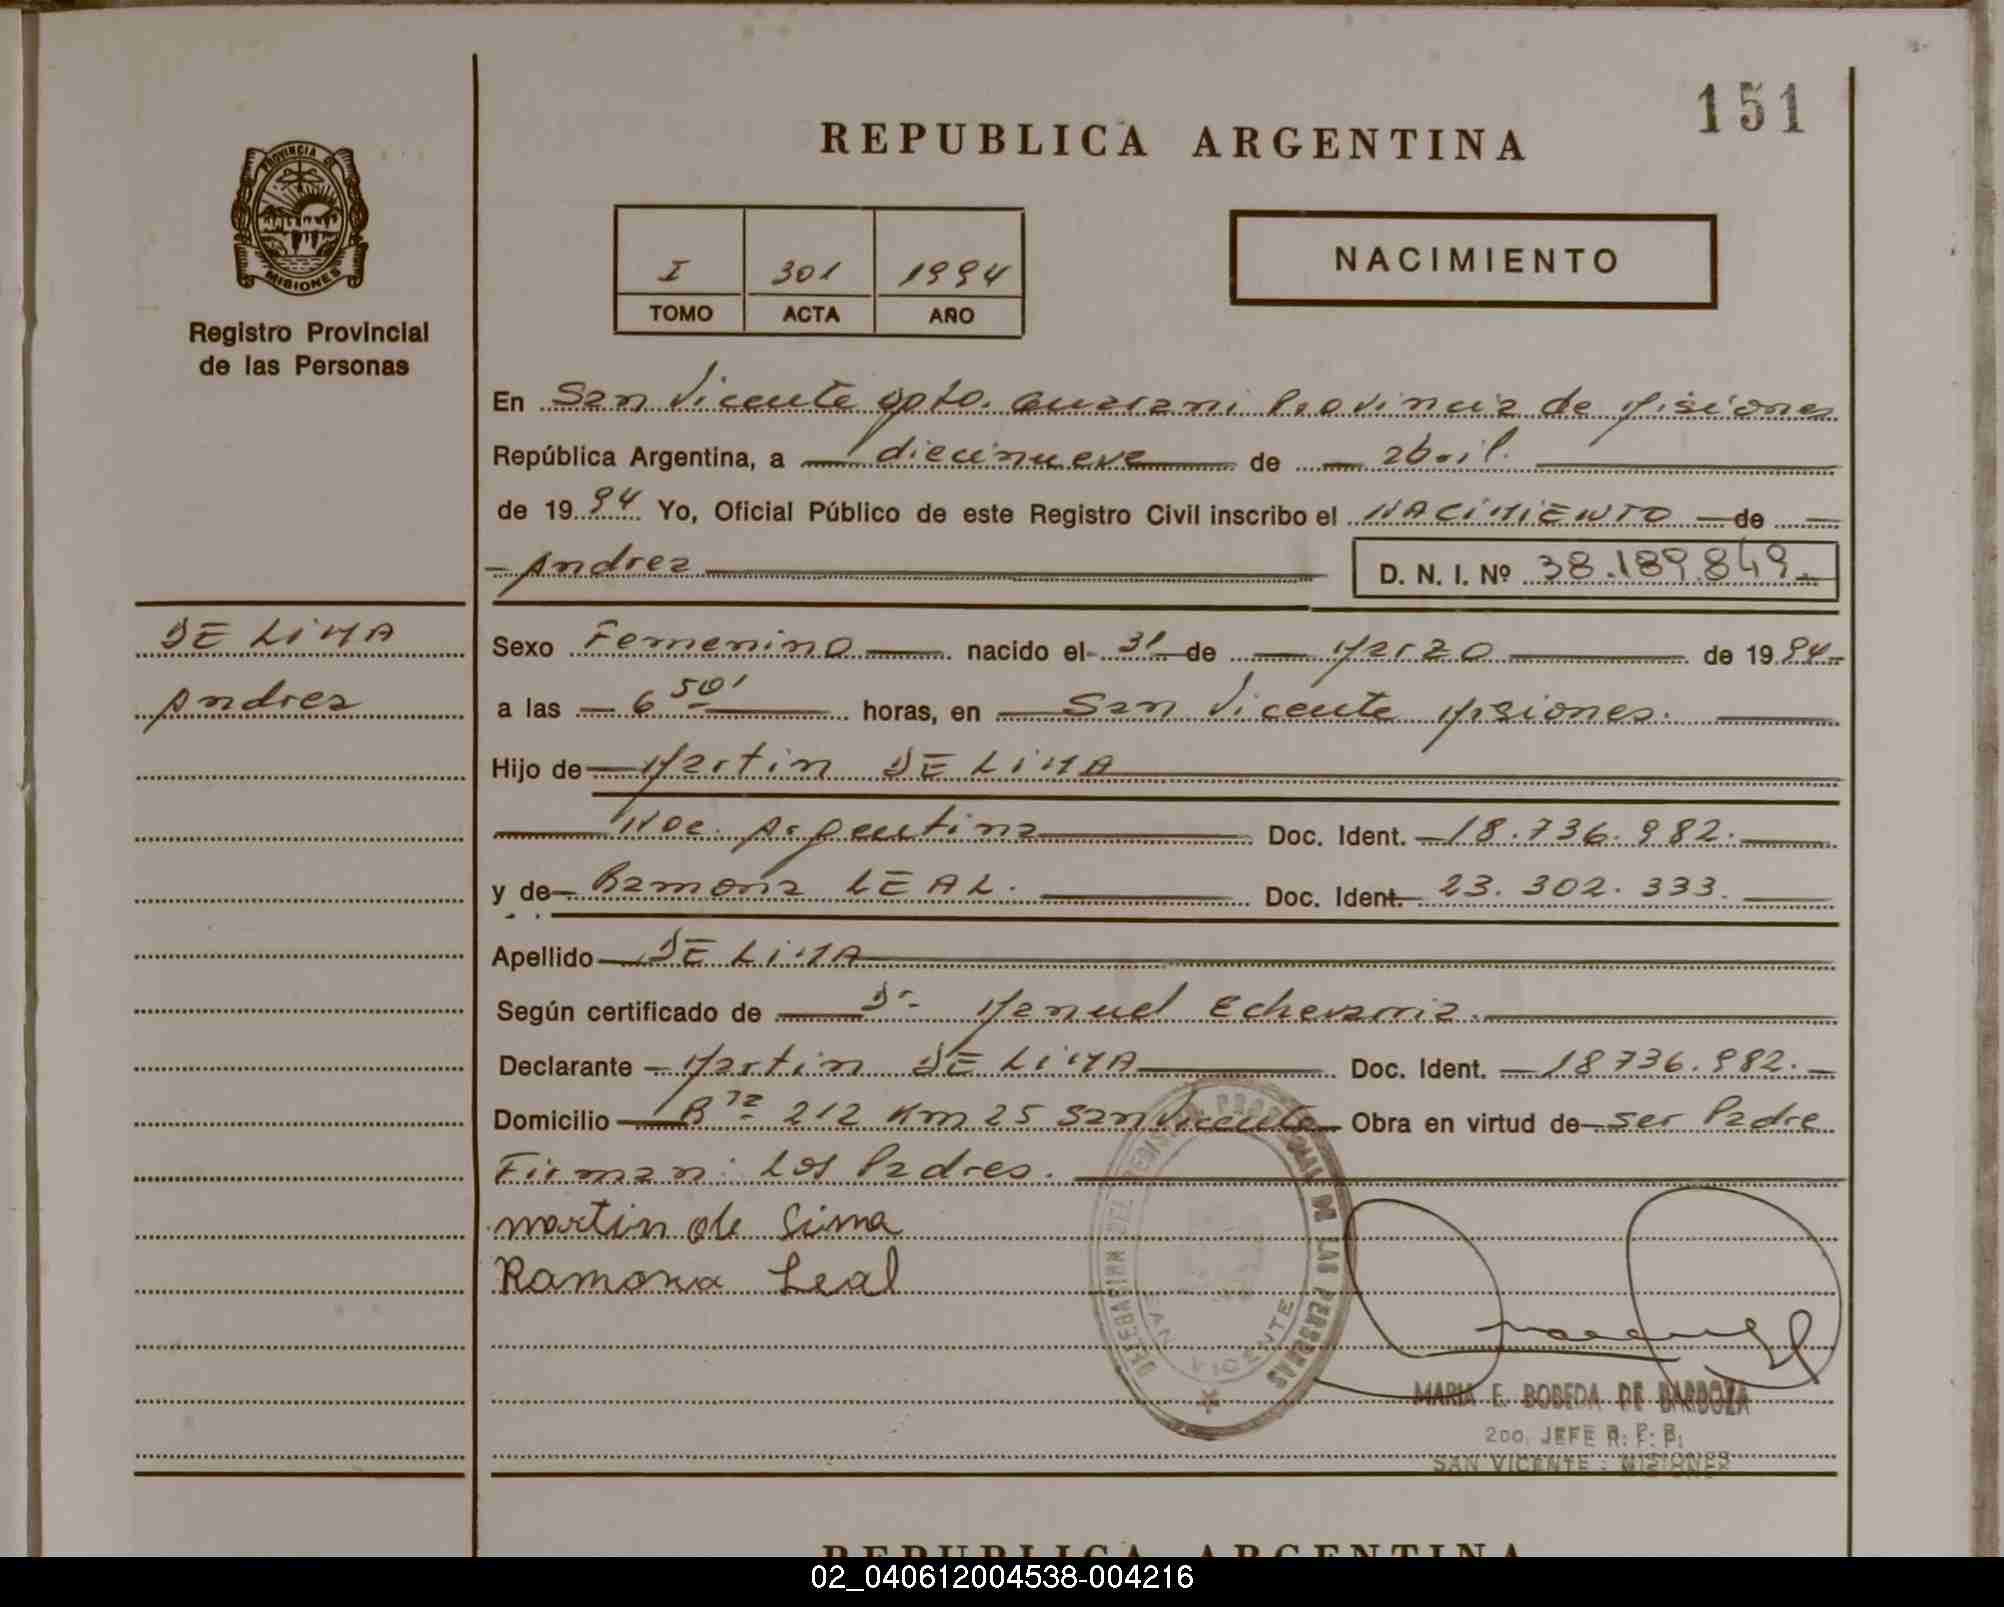 151
REPUBLICA ARGENTINA
PROVINCIA DE
MISIONES
Registro Provincial
de las Personas
I 301 1994
TOMO ACTA AÑO
NACIMIENTO
En San Vicente Dpto. Guarani Provincia de Misiones
República Argentina, a diecinueve de abril.
de 1994 Yo, Oficial Público de este Registro Civil inscribo el NACIMIENTO de
Andrea
D. N. I. Nº 38.189.849.
DE LIMA
Andrea
Sexo Femenino nacido el 31 de Marzo de 1994
a las 6 50' horas, en San Vicente Misiones.
Hijo de Martin DE LIMA
Nac. Argentina Doc. Ident. 18.736.982.
y de Ramona LEAL. Doc. Ident. 23.302.333.
Apellido DE LIMA
Según certificado de Dr Manuel Echevarria.
Declarante Martin DE LIMA Doc. Ident. 18736.982.
Domicilio 212 Km 25 San Vicente Obra en virtud de ser Padre
Firman: Los Padres.
martin de Lima
Ramona Leal
DELEGACION DEL REGISTRO PROVINCIAL DE LAS PERSONAS
SAN VICENTE
MARIA E. BOBEDA DE BARBOZA
2do. JEFE R. P. P.
SAN VICENTE - MISIONES
REPUBLICA ARGENTINA
02_040612004538-004216